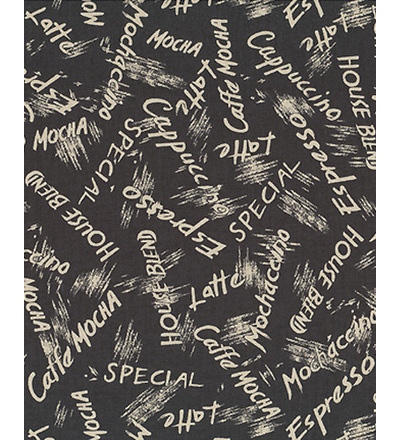 Latte
Mochaccino
MOCHA
Caffé MOCHA
Cappuccino
Espresso
Latte
MOCHA
SPECIAL
Cappuccino
Latte
HOUSE BLEND
Espresso
HOUSE BLEND
SPECIAL
Espresso
SPECIAL
HOUSE BLEND
Latte
Mochaccino
HOUSE BLEND
Caffé MOCHA
SPECIAL
Caffé
Mochaccino
Espresso
MOCHA
Latte